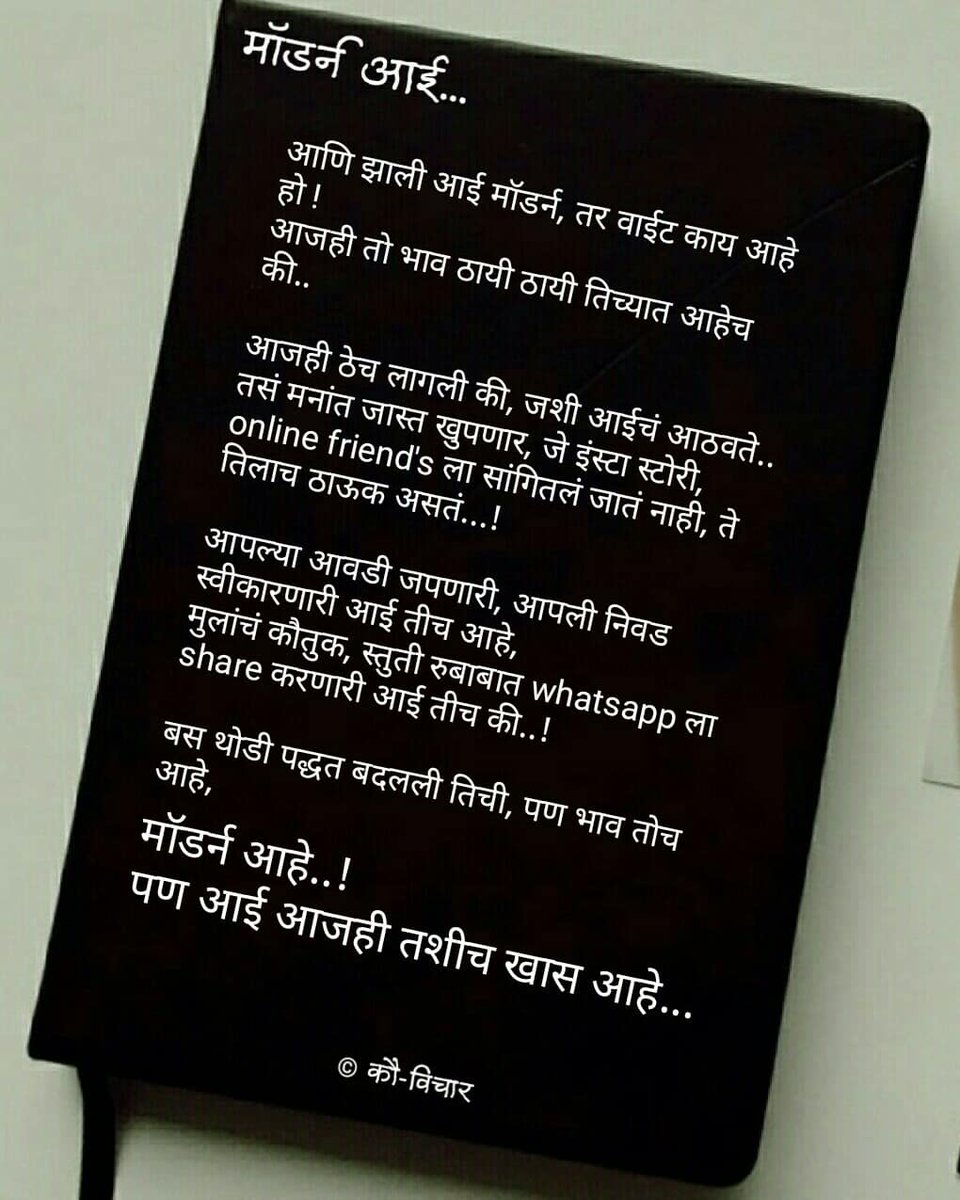 मॉडर्न आई...
आणि झाली आई मॉडर्न, तर वाईट काय आहे
हो !
आजही तो भाव ठायी ठायी तिच्यात आहेच
की..
आजही ठेच लागली की, जशी आईचं आठवते..
तसं मनांत जास्त खुपणार, जे इंस्टा स्टोरी,
online friend's ला सांगितलं जातं नाही, ते
तिलाच ठाऊक असतं...!
आपल्या आवडी जपणारी, आपली निवड
स्वीकारणारी आई तीच आहे,
मुलांचं कौतुक, स्तुती रुबाबात whatsapp ला
share करणारी आई तीच की..!
बस थोडी पद्धत बदलली तिची, पण भाव तोच
आहे,
मॉडर्न आहे..!
पण आई आजही तशीच खास आहे...
© कौ-विचार